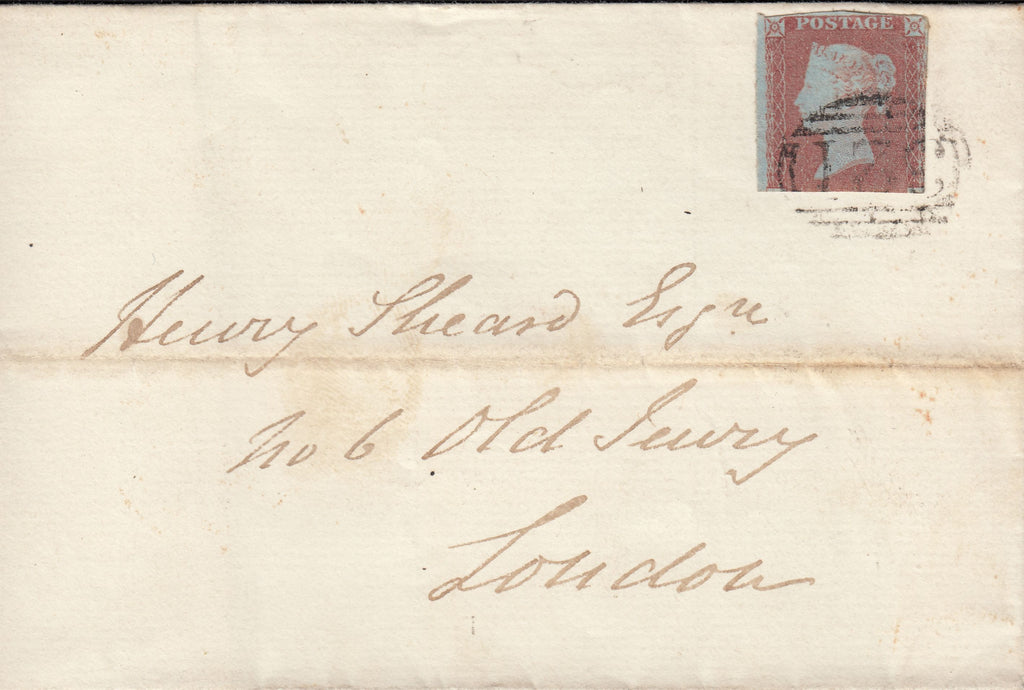 POSTAGE
Henry Sheard Esqre
No 6 Old Jewry
London